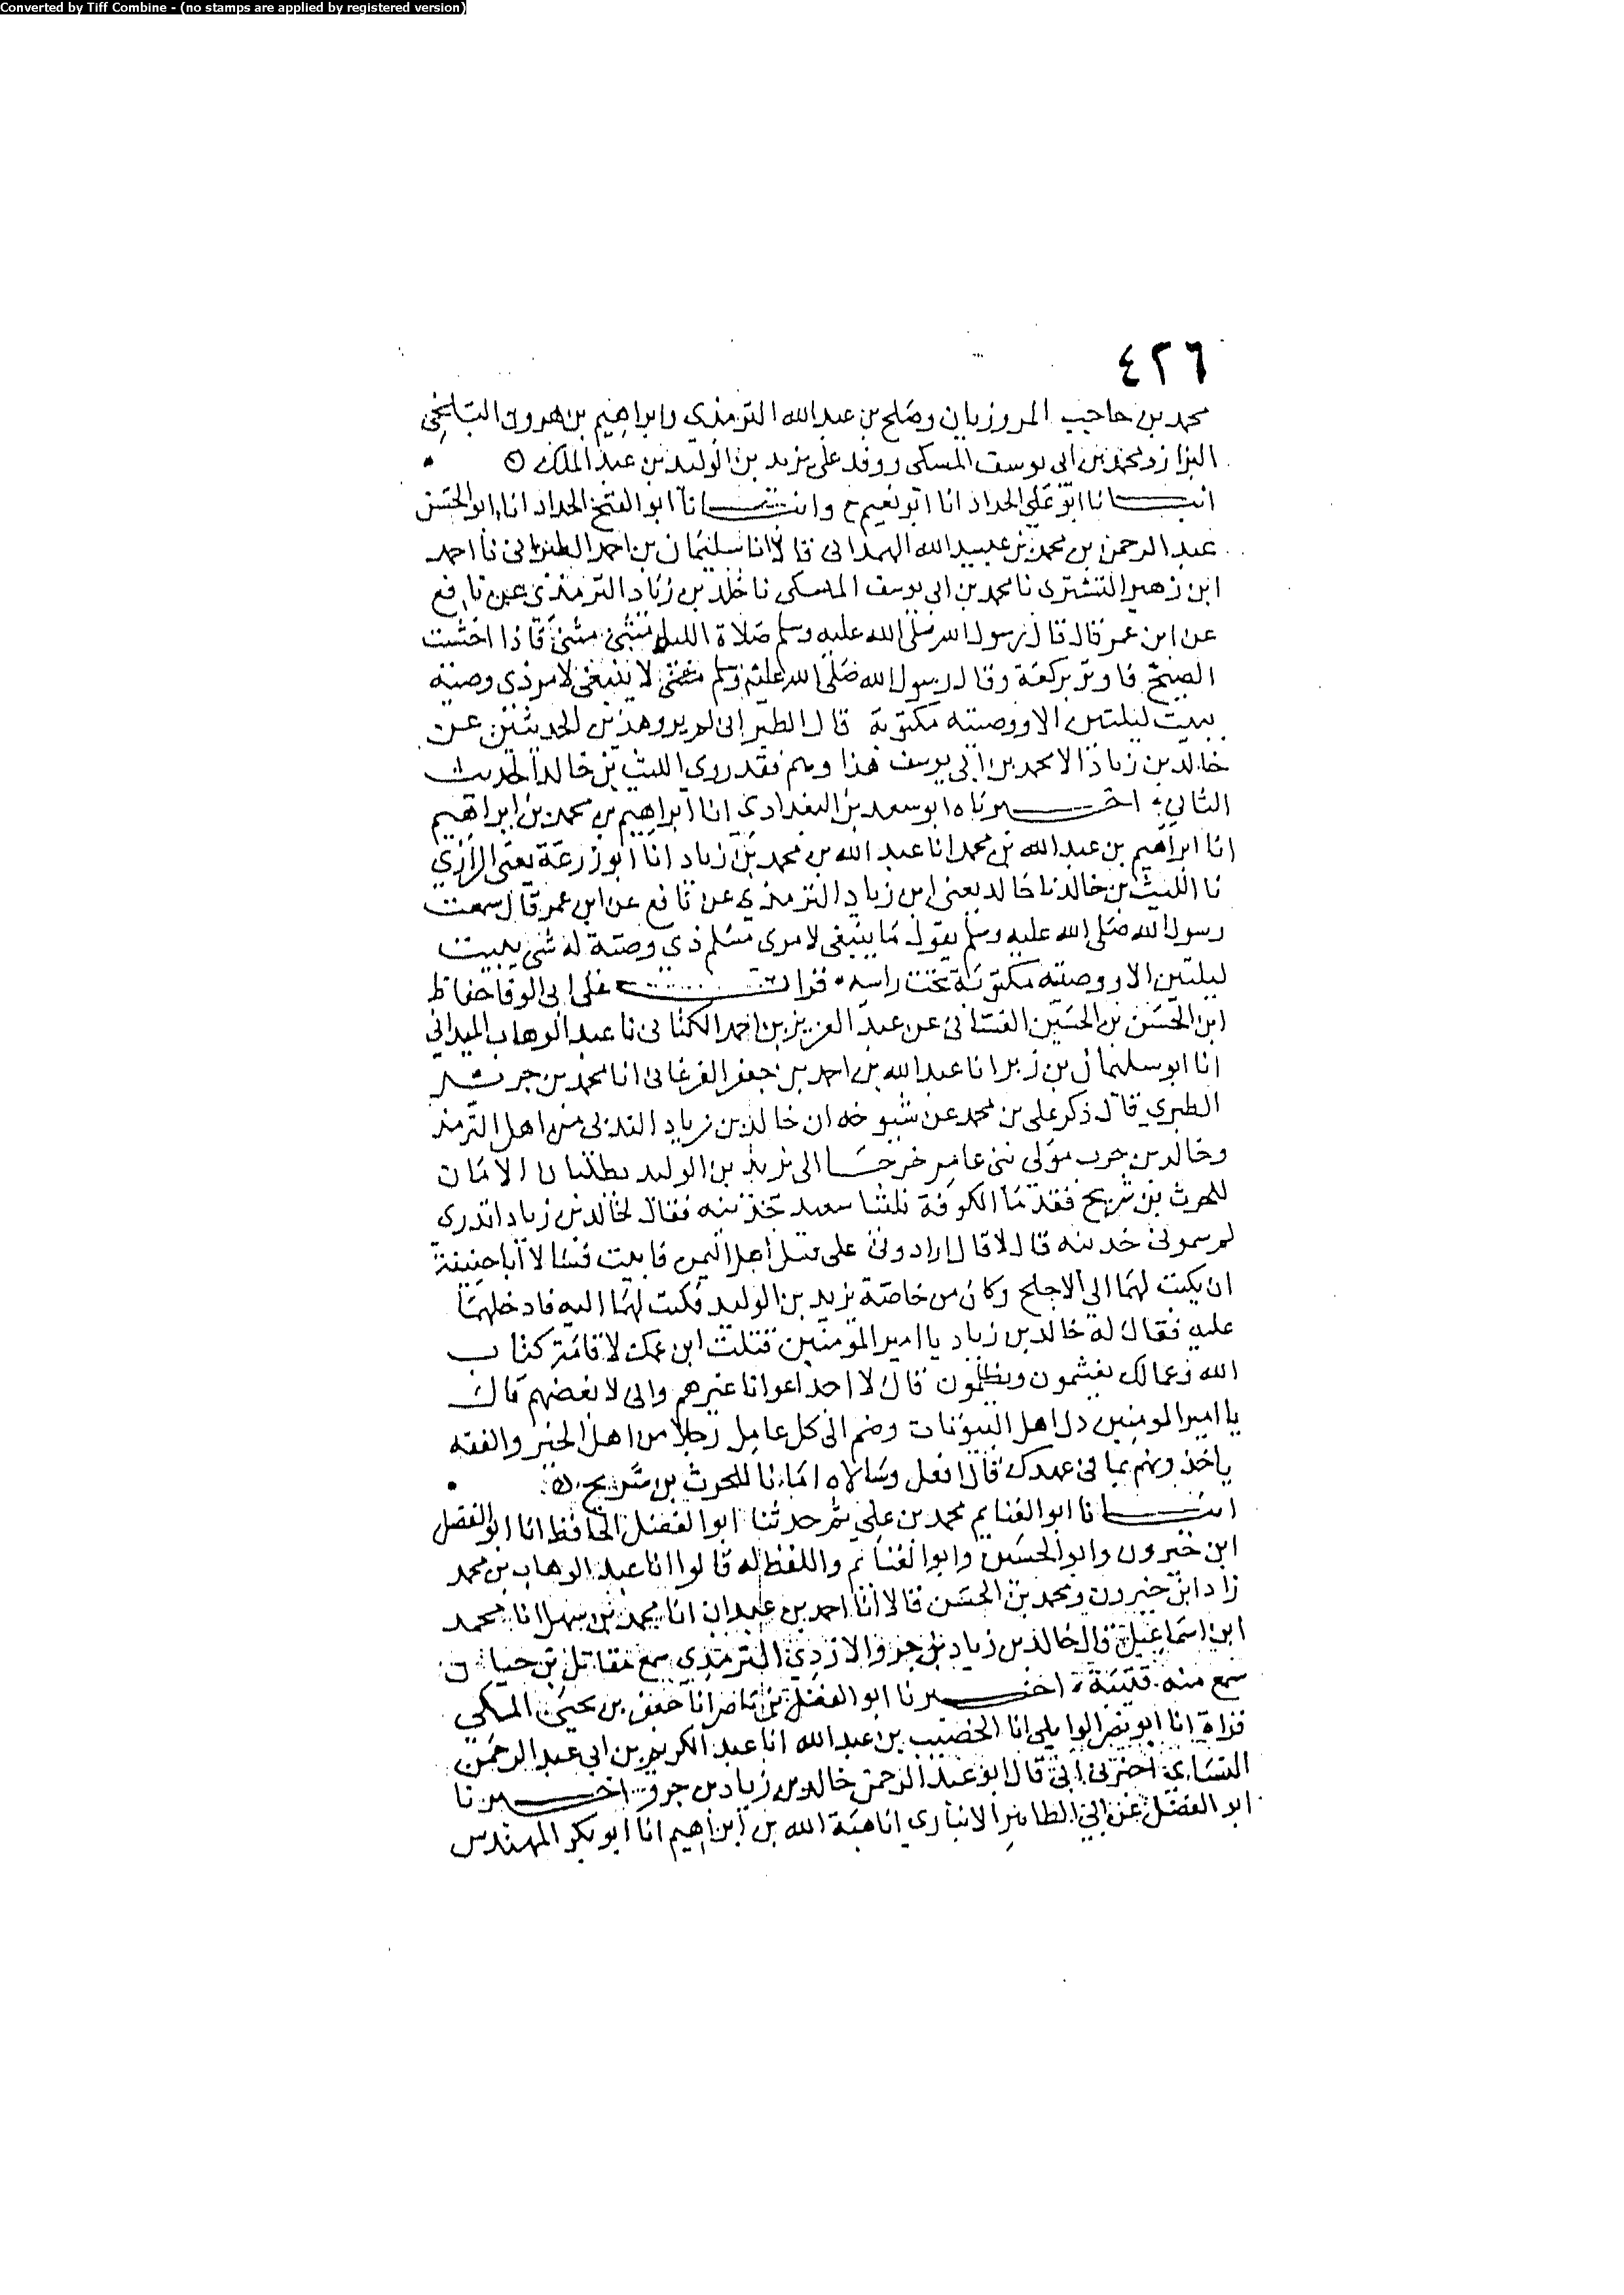 Converted by Tiff Combine - (no stamps are applied by registered version)
٤٢٦
محمد بن حاجب المروزيان وصلح بن عبد الله الترمذي وابراهيم بن هرون البلخي
البزاز ومحمد بن ابي يوسف المسكي ووفد على يزيد بن الوليد بن عبد الملك
انبانا ابو علي الحداد انا ابو نعيم ح وانبانا ابو الفتح الحداد انا ابو الحسن
عبد الرحمن بن محمد بن عبيد الله الهمداني قالا انا سليمان بن احمد الطبراني نا احمد
ابن زهير التستري نا محمد بن ابي يوسف المسكي نا خلد بن زياد الترمذي عن نافع
عن ابن عمر قال قال رسول الله صلى الله عليه وسلم صلاة الليل مثنى مثنى فاذا خشيت
الصبح فاوتر بركعة وقال رسول الله صلى الله عليه وسلم لا ينبغي لامر ذي وصية
يبيت ليلتين الا ووصيته مكتوبة قال الطبراني لم يرو هذين الحديثين عن
خالد بن زياد الا محمد بن ابي يوسف هذا وهم فقد روى الليث بن خالد الحديث
الثاني اخبرناه ابو سعد بن البغدادي انا ابراهيم بن محمد بن ابراهيم
انا ابراهيم بن عبد الله بن محمد انا عبد الله بن محمد بن زياد انا ابو زرعة يعني الرازي
نا الليث بن خالد نا خالد يعني ابن زياد الترمذي عن نافع عن ابن عمر قال سمعت
رسول الله صلى الله عليه وسلم يقول ما ينبغي لامرى مسلم ذي وصية له شي يبيت
ليلتين الا ووصيته مكتوبة تحت راسه قرات على ابي الوفا حفاظ
ابن الحسن بن الحسين الغساني عن عبد العزيز بن احمد الكتاني نا عبد الوهاب الميداني
انا ابو سليمان بن زبر انا عبد الله بن احمد بن جعفر الفرغاني انا محمد بن جرير
الطبري قال ذكر علي بن محمد عن شيوخه ان خالد بن زياد البدي من اهل الترمذ
وخالد بن حرب مولى بني عامر خرجا الى يزيد بن الوليد يطلبان الامان
للحرث بن شريح فقدما الكوفة فلقيا سعيد خذينه فقال لخالد بن زياد اتدري
لم سموني خذينه قال لا قال ارادوني على قتل اهل اليمن فابيت فسالا ابا حنيفة
ان يكتب لهما الى الاجلح وكان من خاصة يزيد بن الوليد فكتب لهما اليه فادخلهما
عليه فقال له خالد بن زياد يا امير المومنين قتلت ابن عمك لاقامة كتاب
الله وعمالك يغشمون ويظلمون قال لا احد اعوانا غيرهم واني لابغضهم قال
يا امير المومنين دل اهل البيوتات وضم الى كل عامل رجلا من اهل الخير والفقه
ياخذونهم بما في عهدك قال افعل وسالاه امانا للحرث بن شريح
انبانا ابو الغنايم محمد بن علي ثم حدثنا ابو الفضل الحافظ انا ابو الفضل
ابن خيرون وابو الحسين وابو الغنائم واللفظ له قالوا انا عبد الوهاب بن محمد
زاد ابن خيرون ومحمد بن الحسن قالا انا احمد بن عبدان انا محمد بن سهل انا محمد
ابن اسماعيل قال خالد بن زياد بن جرو الازدي الترمذي سمع مقاتل بن حيان
سمع منه قتيبة اخبرنا ابو الفضل بن ناصر انا جعفر بن يحيى المكي
قراة انا ابو نصر الوايلي انا الخصيب بن عبد الله انا عبد الكريم بن ابي عبد الرحمن
النساي اخبرني ابي قال ابو عبد الرحمن خالد بن زياد بن جرو اخبرنا
ابو الفضل عن ابي الطاهر الانباري انا هبة الله بن ابراهيم انا ابو بكر المهندس